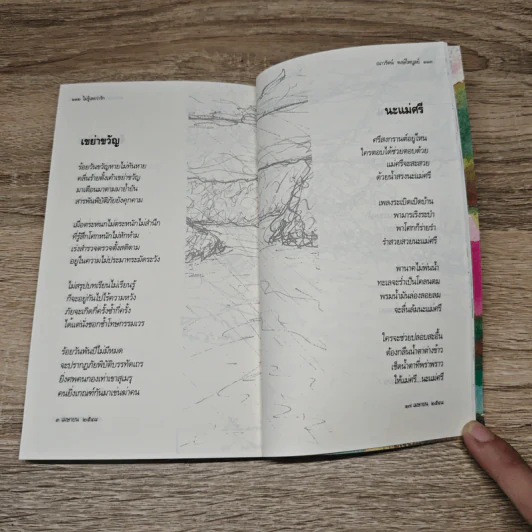 ๑๑๒ ไม่รู้เลยว่ารัก
เขย่าขวัญ
ร้อยวันขวัญหายไม่ทันหาย
คลื่นร้ายตั้งเค้าเขย่าขวัญ
มาเตือนมาตามมาย้ำยัน
สารพันพิบัติภัยยังคุกคาม
เมื่อตระหนกไม่ตระหนักไม่สำนึก
ที่รู้สึกโศกหนักไม่หักห้าม
เร่งสำรวจตรวจตั้งสติตาม
อยู่ในความไม่ประมาทระมัดระวัง
ไม่สรุปบทเรียนไม่เรียนรู้
ก็จะอยู่กันไปไร้ความหวัง
ภัยจะเกิดกี่ครั้งซ้ำกี่ครั้ง
ได้แต่นั่งชอกช้ำโทษกรรมเวร
ร้อยวันพันปีไม่มีหมด
จะปรากฏภัยพิบัติบรรทัดเถร
ยิ่งศพคนกองเท่าเขาสุเมรุ
คนยิ่งเกณฑ์กันมาเข่นฆ่าคน
๓ เมษายน ๒๕๔๘
เนาวรัตน์ พงษ์ไพบูลย์ ๑๑๓
นะแม่ศรี
ศรีสงกรานต์อยู่ไหน
ใครตอบได้ช่วยตอบด้วย
แม่ศรีจะสะสวย
ด้วยน้ำสรงนะแม่ศรี
เพลงระเบิดเปิดบ้าน
พามารเริงระบำ
พาโศกก็ร่ายรำ
รำสวยสวยนะแม่ศรี
พานาคไม่พ่นน้ำ
ทะเลจะร่ำเป็นโคลนตม
พรมน้ำมันล่องลอยลม
จะลื่นล้มนะแม่ศรี
ใครจะช่วยปลอบสะอื้น
ต้องกลืนน้ำตาต่างข้าว
เช็ดน้ำตาที่พร่าพราว
ให้แม่ศรี...นะแม่ศรี
๑๗ เมษายน ๒๕๔๘